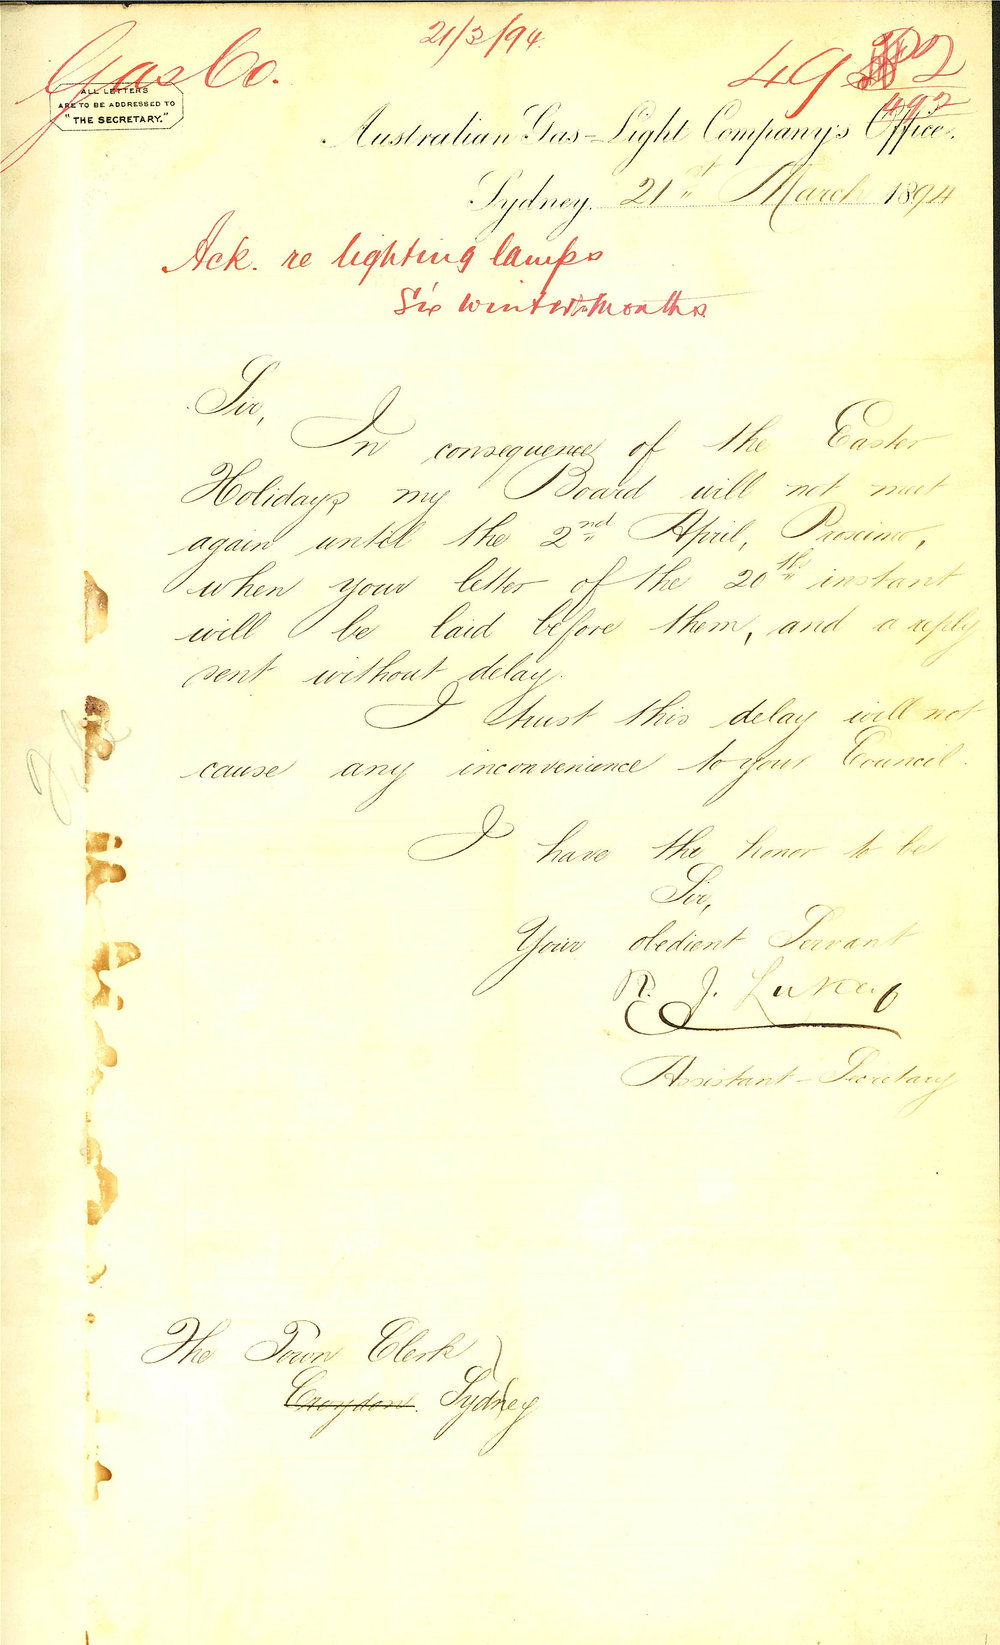 21/3/94
Gas Co.
492
492
ALL LETTERS
ARE TO BE ADDRESSED TO
"THE SECRETARY."
Australian Gas-Light Company's Office.
Sydney. 21st March 1894
Ack. re lighting lamps
Six winter months
Sir,
In consequence of the Easter
Holidays my Board will not meet
again until the 2nd April, Proximo,
when your letter of the 20th instant
will be laid before them, and a reply
sent without delay.
I trust this delay will not
cause any inconvenience to your Council.
I have the honor to be
Sir,
Your obedient Servant
R. J. Lukey
Assistant-Secretary
The Town Clerk
Croydon. Sydney